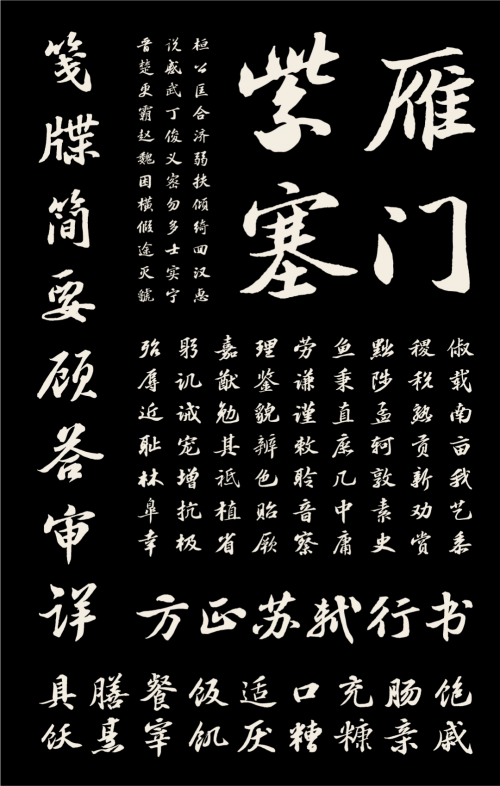 雁门
紫塞
桓公匡合济弱扶倾绮回汉惠
说感武丁俊义密勿多士实宁
晋楚更霸赵魏困横假途灭虢
笺牒简要顾答审详
俶载南亩我艺黍
稷税熟贡新劝赏
黜陟孟轲敦素史
鱼秉直庶几中庸
劳谦谨敕聆音察
理鉴貌辨色贻厥
嘉猷勉其祗植省
躬讥诫宠增抗极
殆辱近耻林皋幸
方正苏轼行书
具膳餐饭适口充肠饱
饫烹宰饥厌糟糠亲戚